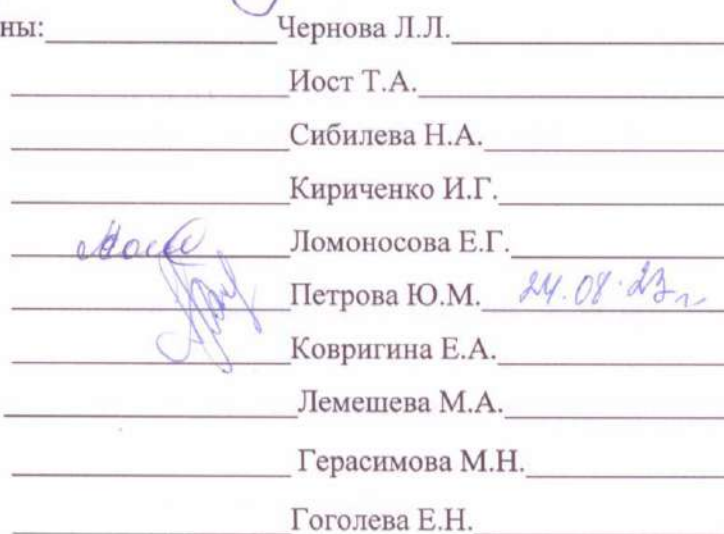 ны: Чернова Л.Л.
Иост Т.А.
Сибилева Н.А.
Кириченко И.Г.
Ломоносова Е.Г.
Петрова Ю.М. 24.08.23 г.
Ковригина Е.А.
Лемешева М.А.
Герасимова М.Н.
Гоголева Е.Н.